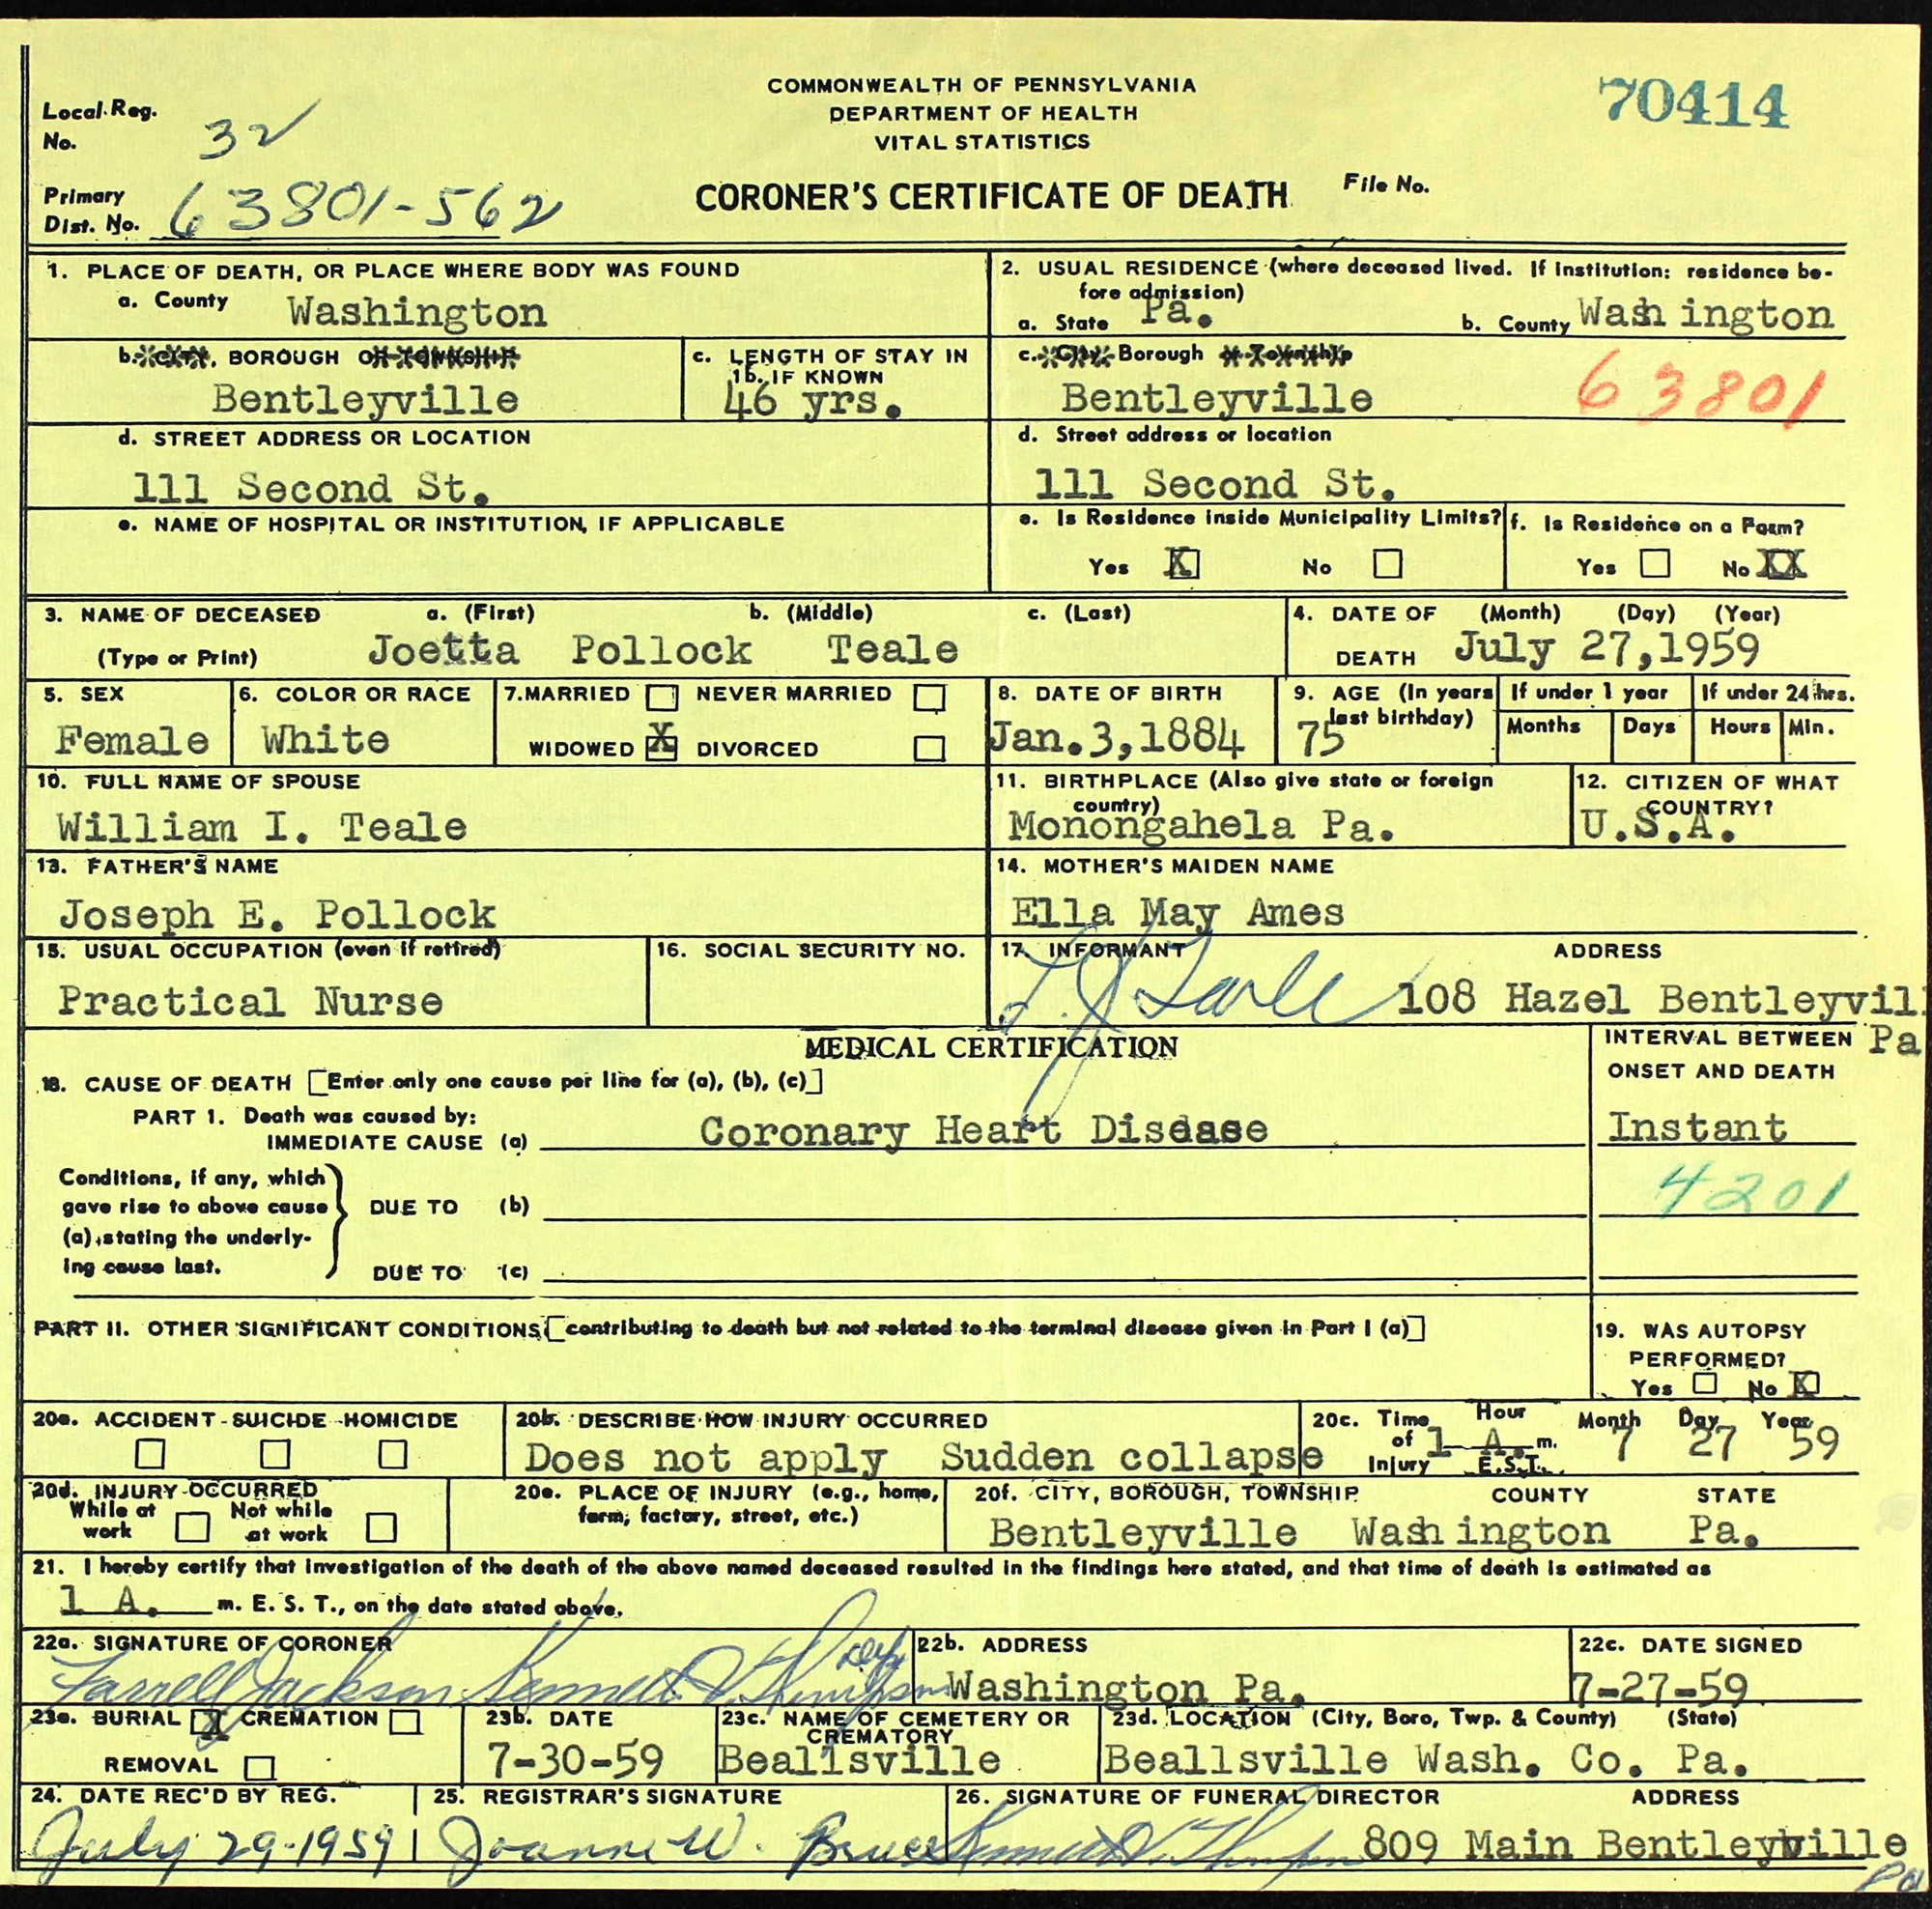 COMMONWEALTH OF PENNSYLVANIA
DEPARTMENT OF HEALTH
VITAL STATISTICS
70414
Local Reg. No. 32
Primary Dist. No. 63801-562
CORONER'S CERTIFICATE OF DEATH
File No.
1. PLACE OF DEATH, OR PLACE WHERE BODY WAS FOUND
a. County Washington
2. USUAL RESIDENCE (where deceased lived. If institution: residence be-
fore admission)
a. State Pa. b. County Wash ington
b. CITY, BOROUGH OR TOWNSHIP
Bentleyville
c. LENGTH OF STAY IN
1b. IF KNOWN
46 yrs.
c. City, Borough or Township
Bentleyville
63801
d. STREET ADDRESS OR LOCATION
111 Second St.
d. Street address or location
111 Second St.
e. NAME OF HOSPITAL OR INSTITUTION, IF APPLICABLE
e. Is Residence inside Municipality Limits?
Yes X No
f. Is Residence on a Farm?
Yes No XX
3. NAME OF DECEASED a. (First) b. (Middle) c. (Last)
(Type or Print) Joetta Pollock Teale
4. DATE OF (Month) (Day) (Year)
DEATH July 27,1959
5. SEX
Female
6. COLOR OR RACE
White
7. MARRIED NEVER MARRIED
WIDOWED X DIVORCED
8. DATE OF BIRTH
Jan.3,1884
9. AGE (In years
last birthday)
75
If under 1 year
Months Days
If under 24 hrs.
Hours Min.
10. FULL NAME OF SPOUSE
William I. Teale
11. BIRTHPLACE (Also give state or foreign
country)
Monongahela Pa.
12. CITIZEN OF WHAT
COUNTRY?
U.S.A.
13. FATHER'S NAME
Joseph E. Pollock
14. MOTHER'S MAIDEN NAME
Ella May Ames
15. USUAL OCCUPATION (even if retired)
Practical Nurse
16. SOCIAL SECURITY NO.
17. INFORMANT ADDRESS
108 Hazel Bentleyvil
Pa
MEDICAL CERTIFICATION
INTERVAL BETWEEN
ONSET AND DEATH
18. CAUSE OF DEATH [Enter only one cause per line for (a), (b), (c)]
PART 1. Death was caused by:
IMMEDIATE CAUSE (a) Coronary Heart Disease
Instant
4201
Conditions, if any, which
gave rise to above cause
(a), stating the underly-
ing cause last.
DUE TO (b)
DUE TO (c)
PART II. OTHER SIGNIFICANT CONDITIONS [contributing to death but not related to the terminal disease given in Part I (a)]
19. WAS AUTOPSY
PERFORMED?
Yes No X
20a. ACCIDENT - SUICIDE - HOMICIDE
20b. DESCRIBE HOW INJURY OCCURRED
Does not apply Sudden collapse
20c. Time of Injury Hour Month Day Year
1 A. m. E.S.T. 7 27 59
20d. INJURY OCCURRED
While at work Not while at work
20e. PLACE OF INJURY (e.g., home,
farm, factory, street, etc.)
20f. CITY, BOROUGH, TOWNSHIP COUNTY STATE
Bentleyville Wash ington Pa.
21. I hereby certify that investigation of the death of the above named deceased resulted in the findings here stated, and that time of death is estimated as
1 A. m. E. S. T., on the date stated above.
22a. SIGNATURE OF CORONER
Farrell Jackson Kenneth V. Thompson Dep
22b. ADDRESS
Washington Pa.
22c. DATE SIGNED
7-27-59
23a. BURIAL X CREMATION
REMOVAL
23b. DATE
7-30-59
23c. NAME OF CEMETERY OR
CREMATORY
Beallsville
23d. LOCATION (City, Boro, Twp. & County) (State)
Beallsville Wash. Co. Pa.
24. DATE REC'D BY REG.
July 29-1959
25. REGISTRAR'S SIGNATURE
Joanne W. Bruce
26. SIGNATURE OF FUNERAL DIRECTOR ADDRESS
Kenneth V. Thompson 809 Main Bentleyville
Pa